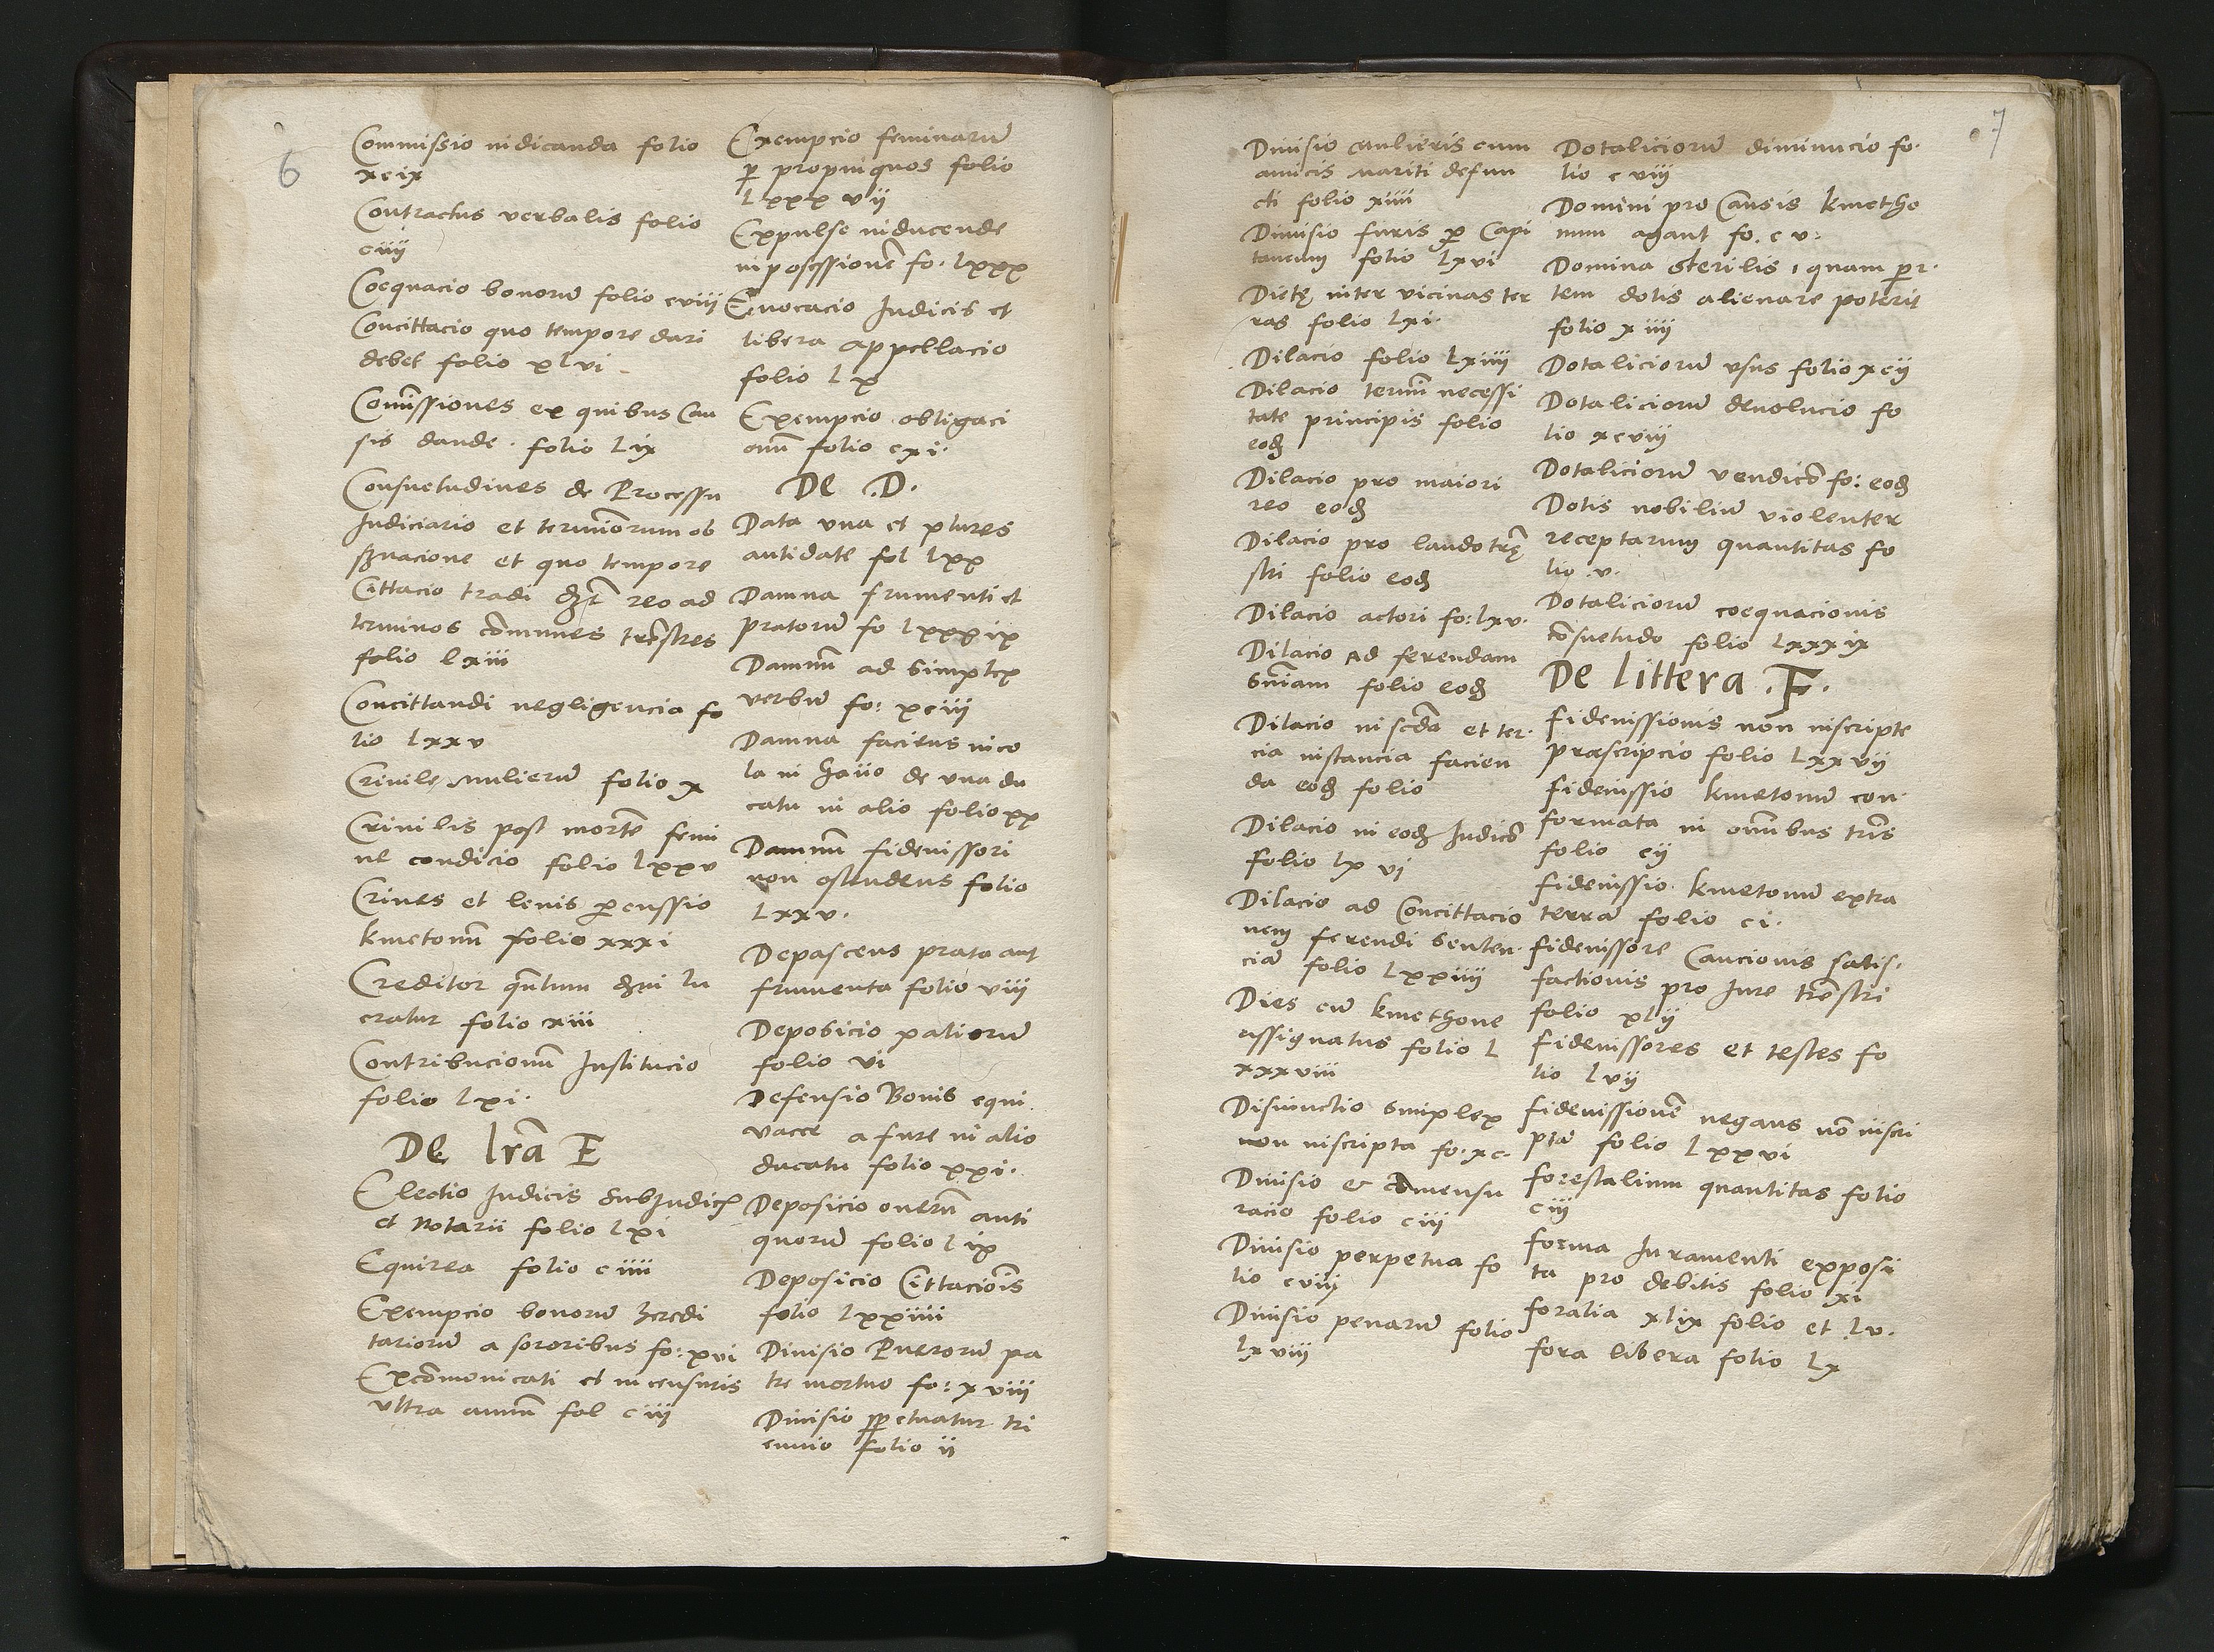 6
Commissio iudicanda folio
xcix
Contractus verbalis folio
ciiij
Coequacio bonorū folio cviij
Concittacio quo tempore dari
debet folio xlvi
Com̄issiones ex quibus Cau
sis dande. folio lix
Consuetudines de Processu
Iudiciario et termīorum ob
suacione et quo tempore
Cittacio tradi reo ad
terminos cōmunes tr̄estres
folio lxiii
Concittandi negligencia fo
lio lxxv
Crinile mulierū folio x
Crinilis post mortē femi
ne condicio folio lxxv
Crines et lenis ꝑcussio
kmetonū folio xxxi
Creditor qn̄tum lu
cratur folio xiii
Contribucionū Institucio
folio lxi.
De lr̄a E
Electio Iudicis SubIudicꝭ
et Notarii folio lxi
Equirea folio ciiii
Exempcio bonorū heredi
tariorū a sororibus fo: xvi
Excōmonicati et in censuris
vltra annū fol ciij
Exempcio feminarū
ꝑ propinquos folio
lxxxvij
Expulse inducende
in possessionē fo. lxxx
Euocacio Iudicis et
libera appellacio
folio lx
Exempcio obligaci
onū folio cxi.
De .D.
Data vna et plures
antidate fol lxx
Damna frumenti et
pratorū fo lxxxix
Damnū ad simplex
verbū fo: xciij
Damna faciens inco
la in Gaiio de vna du
catu in alio folio xx
Damnū fideiussori
non ostendens folio
lxxv.
Depascens prata aut
frumenta folio viij
Deposicio paliorū
folio vi
Defensio Bonis equi
vacce a fure in alio
ducatu folio xxi.
Deposicio onerū anti
quorū folio lix
Deposicio Cittaciōis
folio lxxiiii
Diuisio Puerorū pa
tre mortuo fo: xviij
Diuisio ꝑpetuatur tri
ennio folio ii
7
Diuisio mulieris cum
amicis mariti defun
cti folio xiiii
Diuisio furis ꝑ Capi
taneum folio lxvi
Dietę inter vicinas ter
ras folio lxi.
Dilacio folio lxiiij
Dilacio termī necessi
tate principis folio
eoꝫ
Dilacio pro maiori
reo eoꝫ
Dilacio pro laudo trę̄
stri folio eoꝫ
Dilacio actori fo: lxv.
Dilacio ad ferendam
Sn̄iam folio eoꝫ
Dilacio in scd̄a et ter
cia instancia facien
da eoꝫ folio
Dilacio in eoꝫ Iudicō
folio lxvi
Dilacio ad Concittacio
nem ferendi Senten
ciā folio lxxiiij
Dies cū kmethone
assignatus folio l
xxxviii
Disiunctio simplex
non inscripta fo. xc
Diuisio & cōmensu
racio folio ciij
Diuisio perpetua fo
lio cviij
Diuisio penarū folio
lxviij
Dotaliciorū diminucio fo.
lio cviij
Domini pro Causis kmetho
num agant fo. cv.
Domina sterilis, quam par
tem dotis alienare poterit
folio xiiij
Dotaliciorū vsus folio xcij
Dotaliciorū deuolucio fo
lio xcviij
Dotaliciorū vendicō fo: eoꝫ
Dotis nobiliū violenter
receptarum quantitas fo
lio .v.
Dotaliciorū coequacionis
cōsuetudo folio lxxxix
De littera .F.
fideiussionis non inscripte
præscripcio folio lxxvij
fideiussio kmetonū con
formata in omībus tr̄is
folio cij
fideiussio kmetonū extra
terrā folio ci.
fideiussore Caucionis satis
factionis pro Iure tr̄estri
folio xlij
fideiussores et testes fo
lio lvij
fideiussionē negans nō inscri
ptā folio lxxvi
forestalium quantitas folio
ciij
forma Iuramenti exposi
ta pro debitis folio xi
foralia xlix folio et lv.
fora libera folio lx